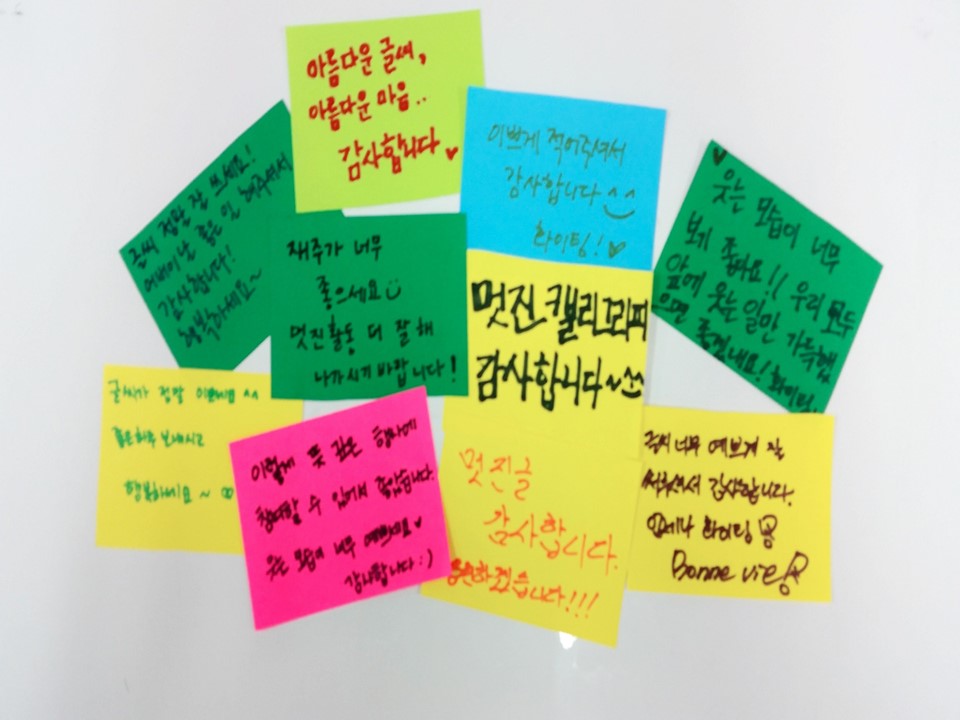 아름다운 글씨,
아름다운 마음..
감사합니다 ♥
이쁘게 적어주셔서
감사합니다 ^^
화이팅! ♥
글씨 정말 잘 쓰세요!
좋은 일 해주셔서
감사합니다!
행복하세요~
재주가 너무
좋으세요
멋진활동 더 잘 해
나가시기 바랍니다!
♥ 웃는 모습이 너무
보기 좋아요!! 우리 모두
앞에 웃는 일만 가득했
으면 좋겠네요! 화이팅!
멋진 캘리그라피
감사합니다~^^
글씨가 정말 이쁘네요 ^^
좋은하루 보내시고
행복하세요~
이렇게 뜻 깊은 행사에
참여할 수 있어서 좋았습니다.
웃는 모습이 너무 예쁘네요♥
감사합니다 :)
멋진글
감사합니다.
응원하겠습니다!!!
글씨 너무 예쁘게 잘
써주셔서 감사합니다.
언제나 화이팅
Bonne vie!